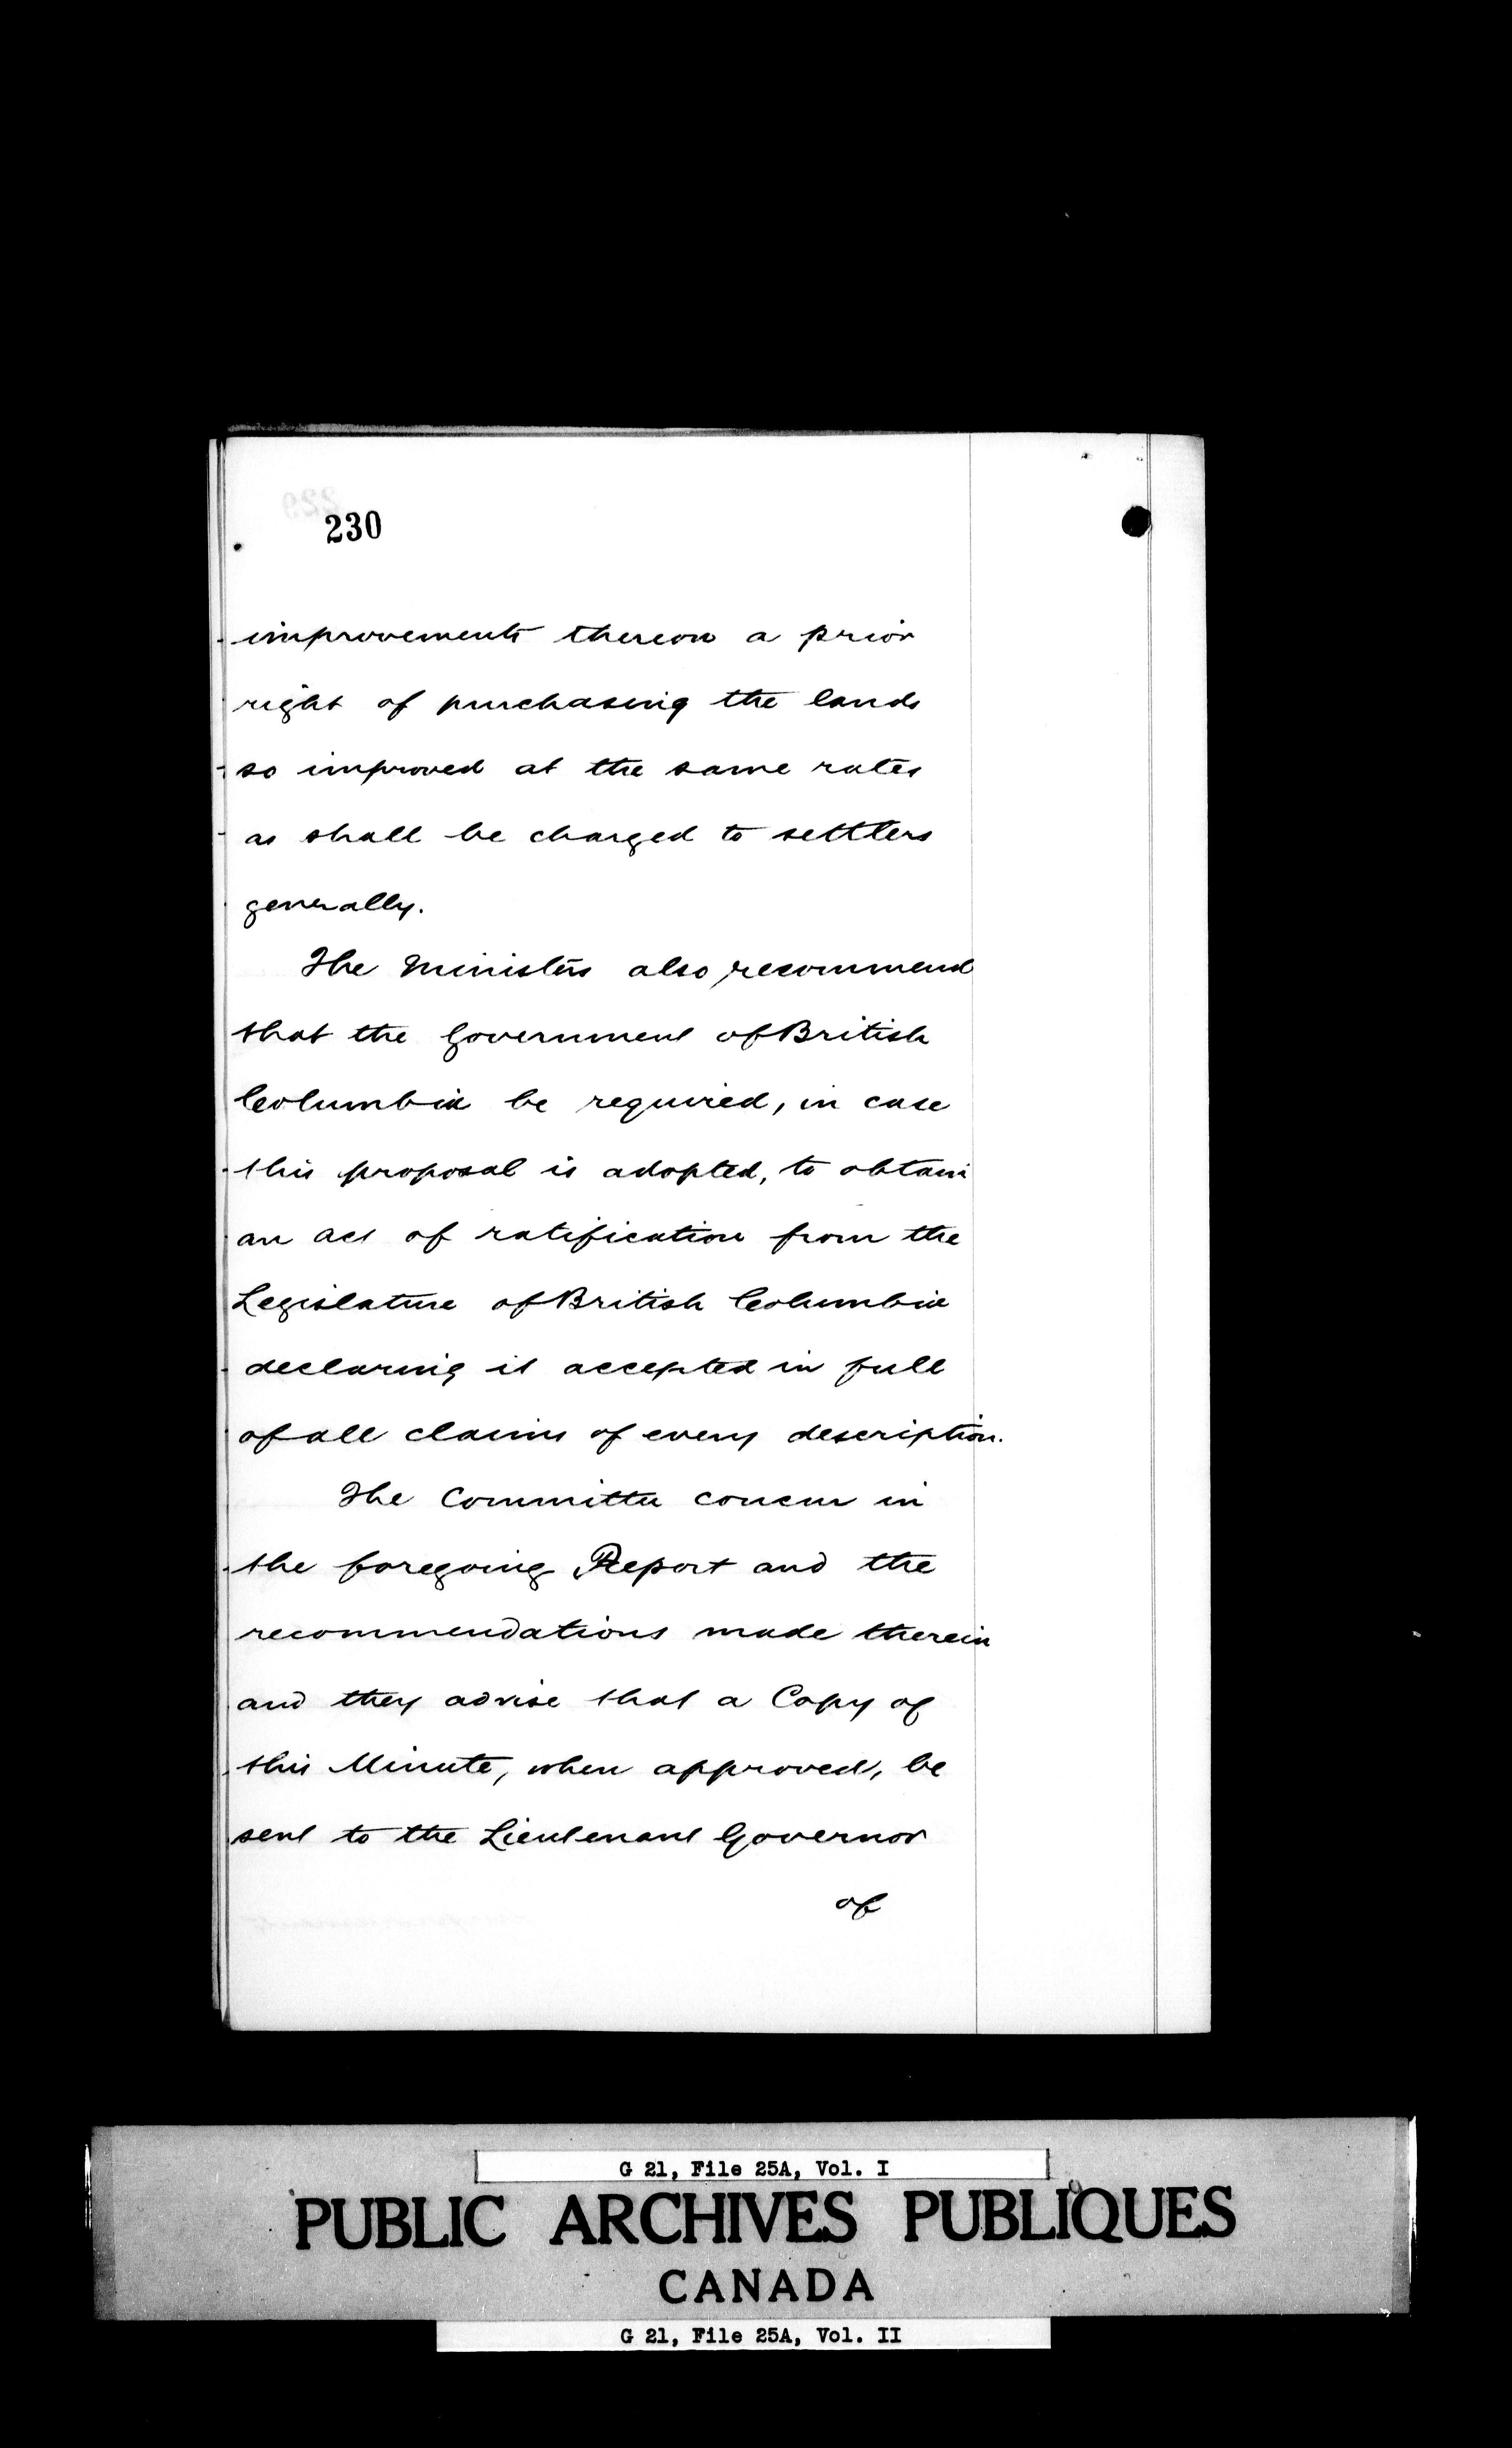 230
improvements thereon a prior
right of purchasing the lands
so improved at the same rates
as shall be charged to settlers
generally.
The Ministers also recommend
that the Government of British
Columbia be required, in case
this proposal is adopted, to obtain
an act of ratification from the
Legislature of British Columbia
declaring it accepted in full
of all claims of every description.
The Committee concur in
the foregoing Report and the
recommendations made therein
and they advise that a Copy of
this Minute, when approved, be
sent to the Lieutenant Governor
of
G 21, File 25A, Vol. I
PUBLIC ARCHIVES PUBLIQUES
CANADA
G 21, File 25A, Vol. II